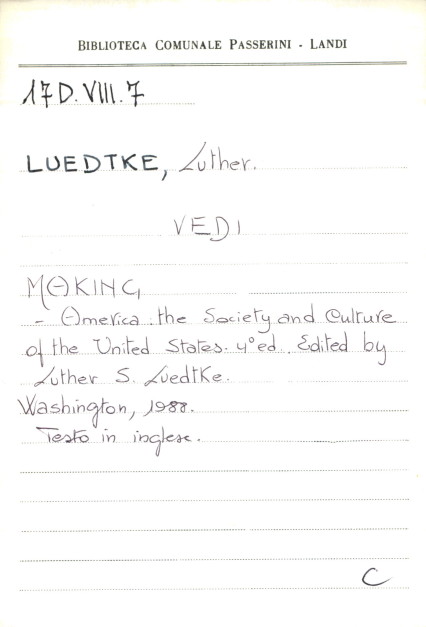 BIBLIOTECA COMUNALE PASSERINI - LANDI
17D.VIII.7
LUEDTKE, Luther.
VEDI
MAKING
- America. the Society and Culture
of the United States. 4° ed. Edited by
Luther S. Luedtke.
Washington, 1988.
Testo in inglese.
C